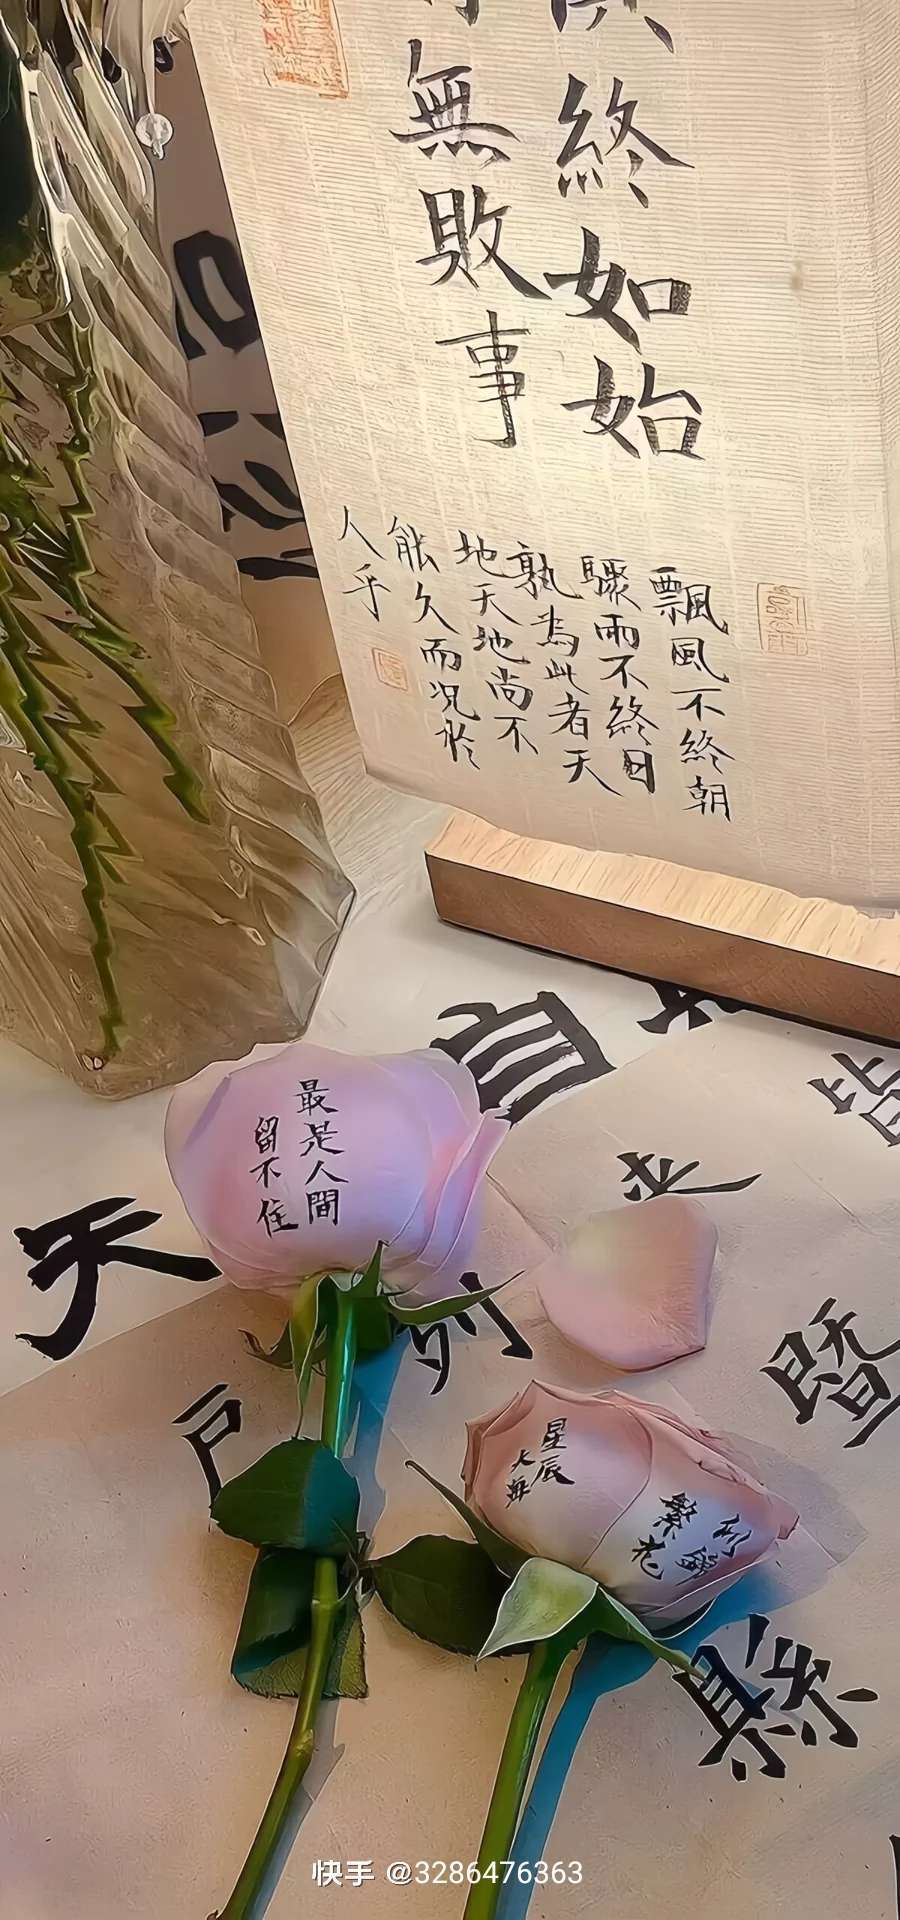 終如始
無敗事
飄風不終朝
驟雨不終日
孰為此者天
地天地尚不
能久而况於
人乎
最是人間
留不住
星辰
大海
似錦
繁花
天
列
戶
皆
暨
縣
快手 @3286476363